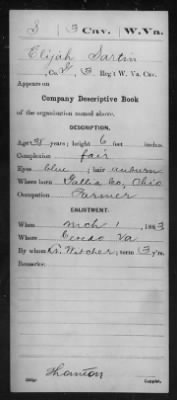 S | 3 Cav. | W.Va.
Elijah Sartin
, Co. I, 3 Reg't W. Va. Cav.
Appears on
Company Descriptive Book
of the organization named above.
DESCRIPTION.
Age 38 years; height 6 feet inches.
Complexion fair
Eyes blue; hair auburn
Where born Gallia Co, Ohio
Occupation Farmer
ENLISTMENT.
When Mch 1, 1863
Where Ceredo Va
By whom Witcher; term 3 y'rs.
Remarks:
Thornton
Copyist.